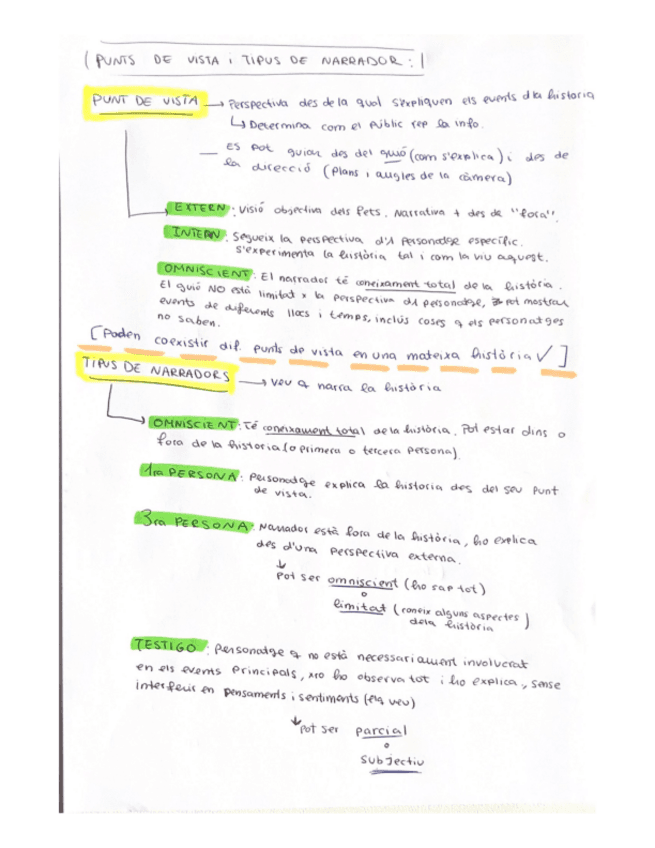 PUNTS DE VISTA i TIPUS DE NARRADOR:
PUNT DE VISTA → Perspectiva des de la qual s'expliquen els events d la historia
↳ Determina com el públic rep la info.
— ES pot guiar des del guió (com s'explica) i des de
la direcció (plans i angles de la càmera)
EXTERN: Visió objectiva dels fets. Narrativa + des de "fora".
INTERN: Segueix la perspectiva d'1 personatge específic.
s'experimenta la història tal i com la viu aquest.
OMNISCIENT: El narrador té coneixament total de la història.
El guió NO està limitat x la perspectiva d1 personatge, pot mostrar
events de diferents llocs i temps, inclús coses q els personatges
no saben.
[Poden coexistir dif. punts de vista en una mateixa història ✓]
TIPUS DE NARRADORS → veu q narra la història
OMNISCIENT: Té coneixament total de la història. Pot estar dins o
fora de la historia (o primera o tercera persona).
1ra PERSONA: Personatge explica la historia des del seu punt
de vista.
3ra PERSONA: Narrador està fora de la història, ho explica
des d'una perspectiva externa.
↓
Pot ser omniscient (ho sap tot)
o
limitat (coneix alguns aspectes)
dela història
TESTIGO: personatge q no està necessariament involucrat
en els events principals, xro ho observa tot i ho explica, sense
interferir en pensaments i sentiments (ells veu)
↓ Pot ser parcial
o
subjectiu